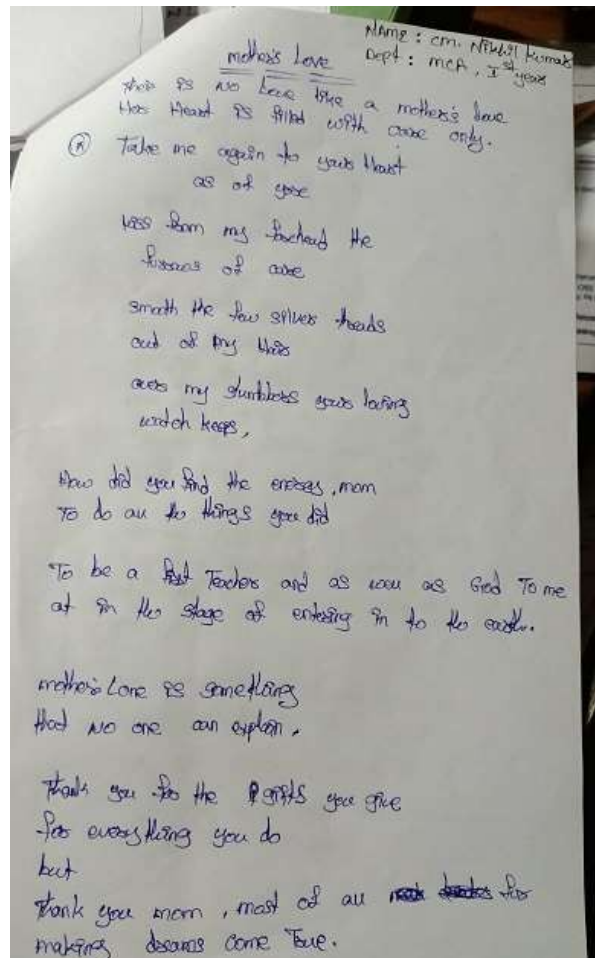 Name : cm. Nikhil Kumar
Dept : MCA, Ist year
mother's Love
their is No Love like a mother's love
Her Heart is filled with care only.
Take me again to your Heart
as of yore
kiss from my forehead the
furrows of care
smooth the few silver threads
out of my Hair
over my slumbers your loving
watch keeps,
How did you find the energy, mom
To do all the things you did
To be a first Teacher and as well as God To me
at in the stage of entering in to the earth.
mother's Love is something
that No one can explain.
Thank you for the gifts you give
for everything you do
but
Thank you mom, most of all for
making dreams come True.